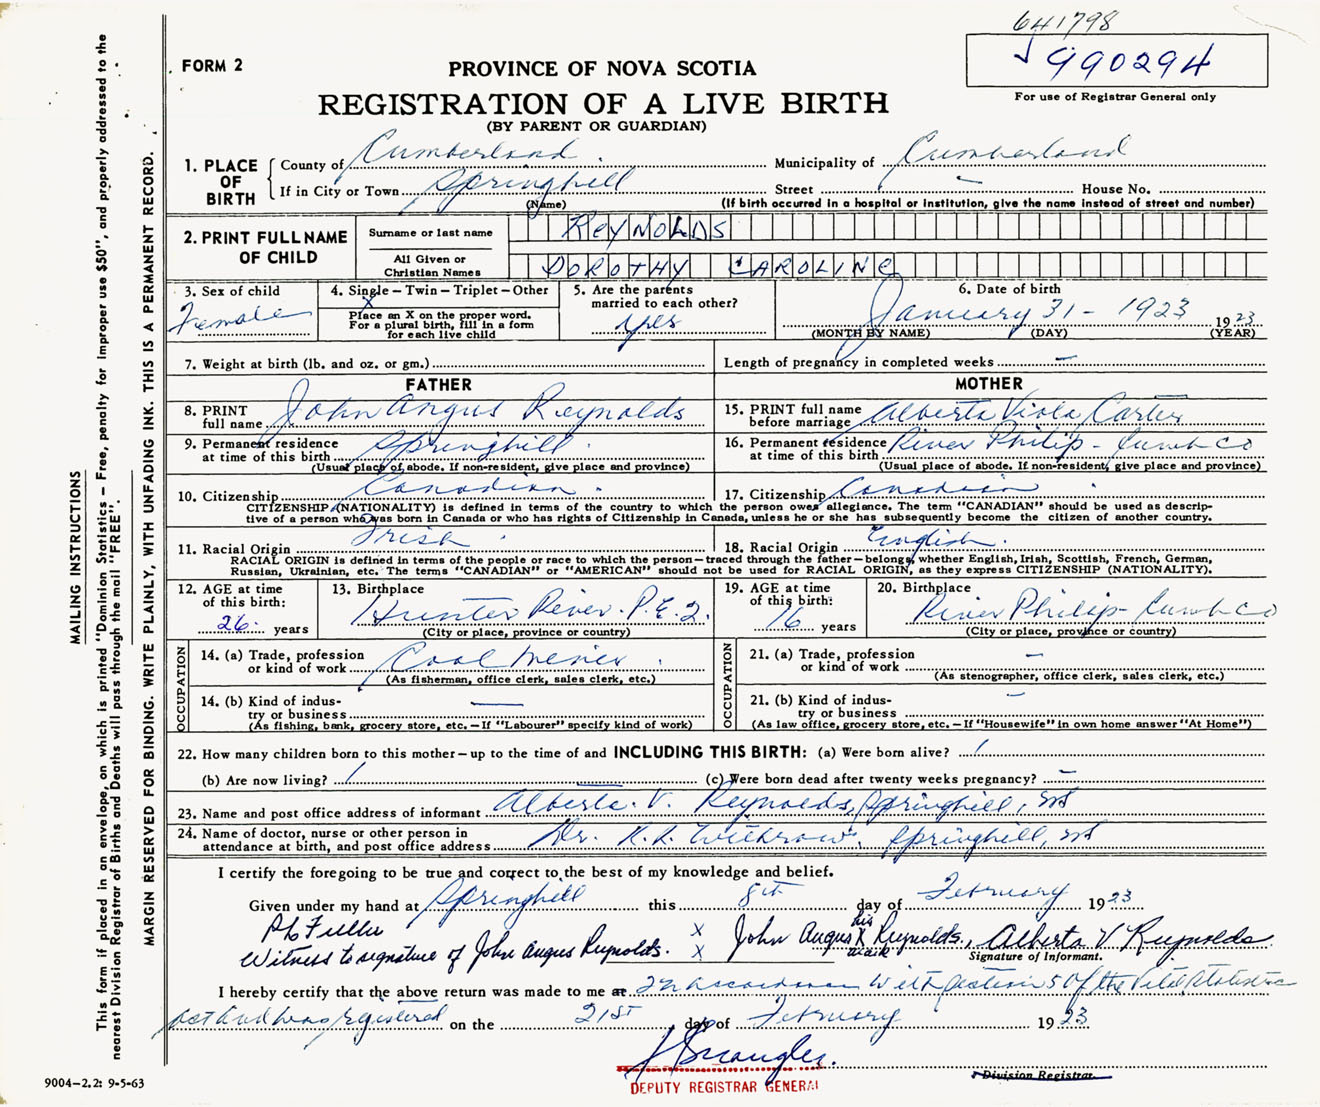 641798
990294
For use of Registrar General only
FORM 2
PROVINCE OF NOVA SCOTIA
REGISTRATION OF A LIVE BIRTH
(BY PARENT OR GUARDIAN)
1. PLACE OF BIRTH
County of Cumberland Municipality of Cumberland
If in City or Town Springhill Street – House No.
(Name) (If birth occurred in a hospital or institution, give the name instead of street and number)
2. PRINT FULL NAME OF CHILD
Surname or last name REYNOLDS
All Given or Christian Names DOROTHY CAROLINE
3. Sex of child
Female
4. Single – Twin – Triplet – Other
X
Place an X on the proper word.
For a plural birth, fill in a form
for each live child
5. Are the parents
married to each other?
yes
6. Date of birth
January 31 - 1923 1923
(MONTH BY NAME) (DAY) (YEAR)
7. Weight at birth (lb. and oz. or gm.) Length of pregnancy in completed weeks –
FATHER
8. PRINT
full name John Angus Reynolds
9. Permanent residence
at time of this birth Springhill
(Usual place of abode. If non-resident, give place and province)
10. Citizenship Canadian
MOTHER
15. PRINT full name
before marriage Alberta Viola Carter
16. Permanent residence
at time of this birth River Philip - Cumb Co
(Usual place of abode. If non-resident, give place and province)
17. Citizenship Canadian
CITIZENSHIP (NATIONALITY) is defined in terms of the country to which the person owes allegiance. The term "CANADIAN" should be used as descrip-
tive of a person who was born in Canada or who has rights of Citizenship in Canada, unless he or she has subsequently become the citizen of another country.
11. Racial Origin Irish 18. Racial Origin English
RACIAL ORIGIN is defined in terms of the people or race to which the person – traced through the father – belongs, whether English, Irish, Scottish, French, German,
Russian, Ukrainian, etc. The terms "CANADIAN" or "AMERICAN" should not be used for RACIAL ORIGIN, as they express CITIZENSHIP (NATIONALITY).
12. AGE at time
of this birth:
26 years
13. Birthplace
Hunter River. P.E.I.
(City or place, province or country)
19. AGE at time
of this birth:
16 years
20. Birthplace
River Philip - Cumb Co
(City or place, province or country)
OCCUPATION
14. (a) Trade, profession
or kind of work Coal Miner
(As fisherman, office clerk, sales clerk, etc.)
14. (b) Kind of indus-
try or business –
(As fishing, bank, grocery store, etc. – If "Labourer" specify kind of work)
OCCUPATION
21. (a) Trade, profession
or kind of work –
(As stenographer, office clerk, sales clerk, etc.)
21. (b) Kind of indus-
try or business –
(As law office, grocery store, etc. – If "Housewife" in own home answer "At Home")
22. How many children born to this mother – up to the time of and INCLUDING THIS BIRTH: (a) Were born alive? 1
(b) Are now living? 1 (c) Were born dead after twenty weeks pregnancy? –
23. Name and post office address of informant Alberta. V. Reynolds, Springhill, NS
24. Name of doctor, nurse or other person in
attendance at birth, and post office address Dr. Withrow, Springhill, NS
I certify the foregoing to be true and correct to the best of my knowledge and belief.
Given under my hand at Springhill this 8th day of February 1923
Fuller
his
Witness to signature of John Angus Reynolds. X X John Angus X Reynolds., Alberta V Reynolds
mark
Signature of Informant.
I hereby certify that the above return was made to me at In accordance with section 5 of the Vital Statistics
act and was registered on the 21st day of February 1923
DEPUTY REGISTRAR GENERAL
Division Registrar
9004-2.2: 9-5-63
MAILING INSTRUCTIONS
This form if placed in an envelope, on which is printed "Dominion Statistics – Free, penalty for improper use $50", and properly addressed to the
nearest Division Registrar of Births and Deaths will pass through the mail "FREE".
MARGIN RESERVED FOR BINDING. WRITE PLAINLY, WITH UNFADING INK. THIS IS A PERMANENT RECORD.